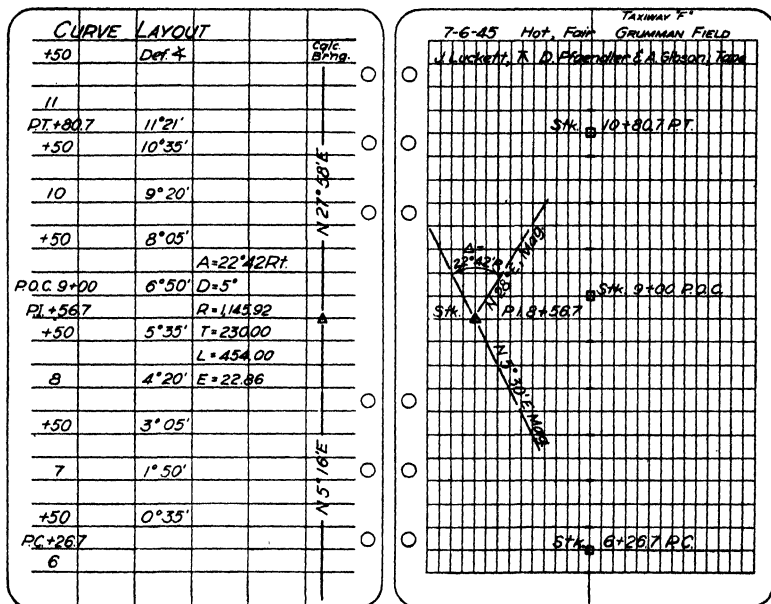 CURVE LAYOUT
+50 Def. ∡ Calc. Brng.
11
P.T. +80.7 11°21'
+50 10°35'
10 9°20'
+50 8°05'
A=22°42Rt.
P.O.C. 9+00 6°50' D=5°
P.I. +56.7 R=1,145.92
+50 5°35' T=230.00
L=454.00
8 4°20' E=22.86
+50 3°05'
7 1°50'
+50 0°35'
P.C. +26.7
6
N 27°58'E
N 5°16'E
TAXIWAY "F"
7-6-45 Hot, Fair GRUMMAN FIELD
J. Luckett, ⊼ D. Pfaendler & A. Gibson, Tape
Stk. 10+80.7 P.T.
Δ=
22°42'Rt.
N 28° E, Mag.
Stk. 9+00 P.O.C.
Stk. P.I. 8+56.7
N 5°30'E Mag.
Stk. 6+26.7 P.C.